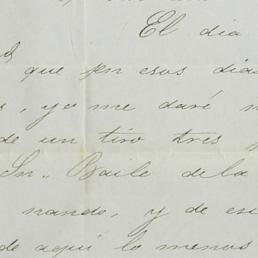 El dia
que en esos dias
, yo me daré
de un tiro tres
Sn.. Baile de la
nando, y de es
de aqui lo menos